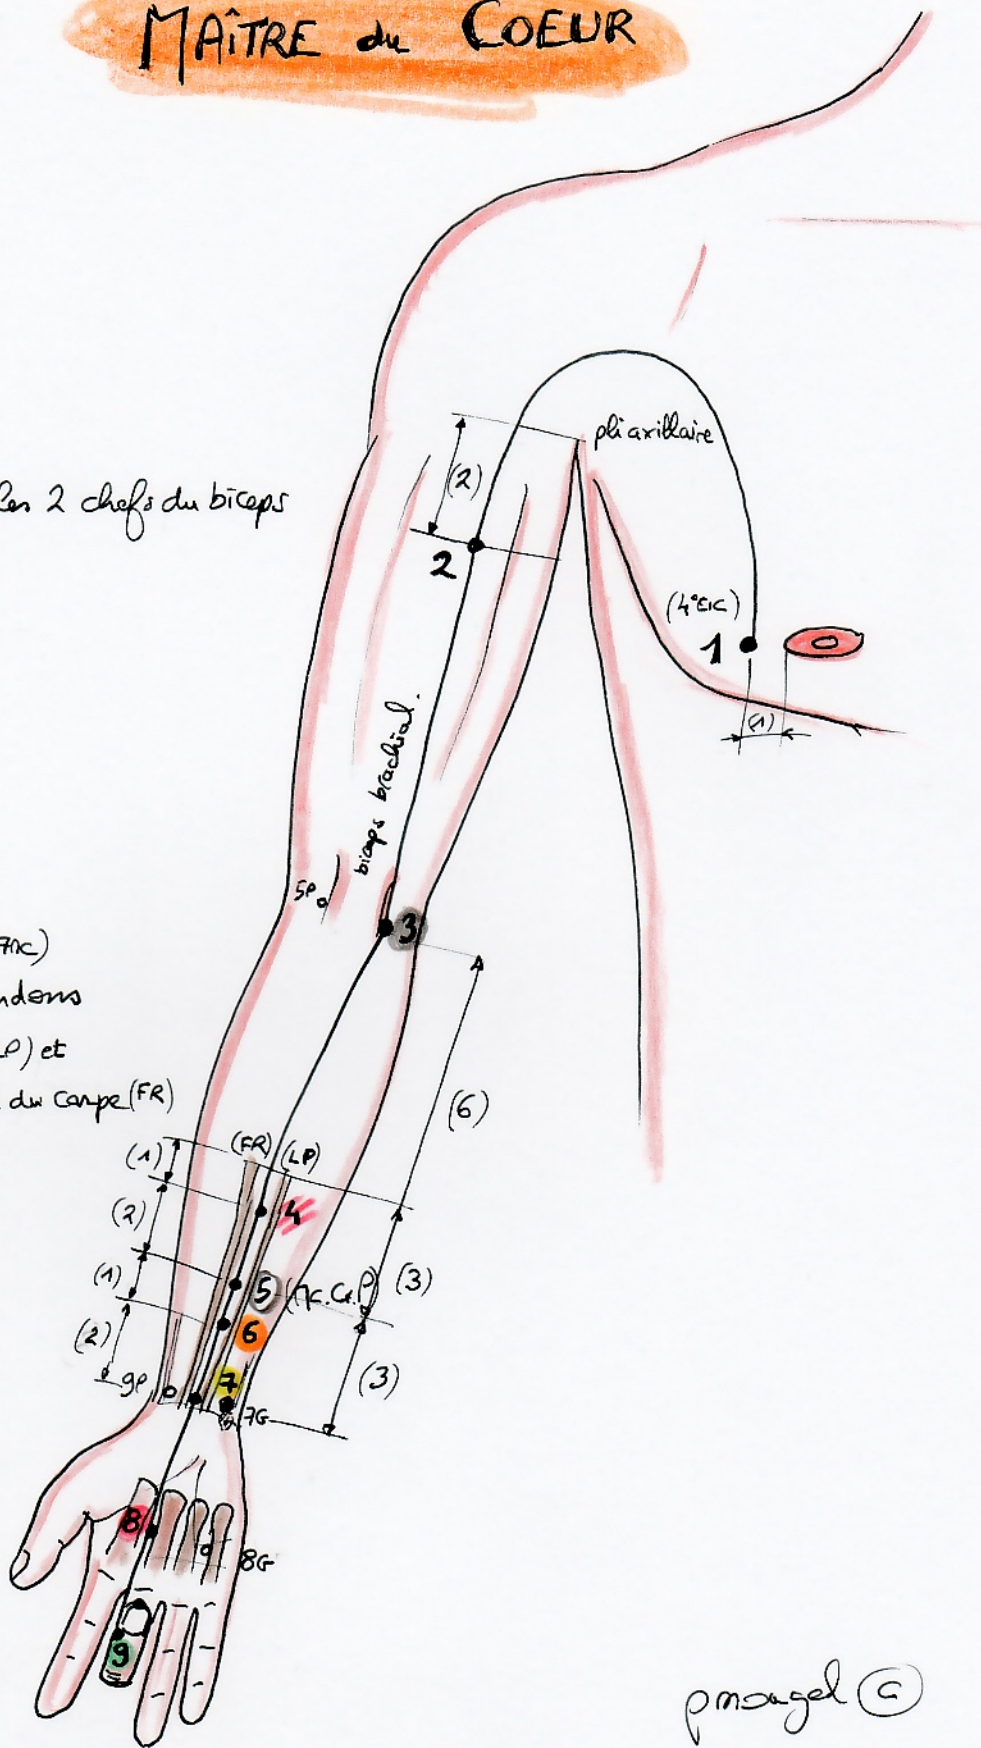 MAÎTRE du COEUR
pli axillaire
(2)
les 2 chefs du biceps
2
(4°EIC)
1
(1)
biceps brachial.
5P
3
7MC)
ndons
LP) et
du carpe (FR)
(6)
(1)
(FR) (LP)
(2)
4
(1)
5
(3)
(2)
6
9P
7
(3)
7G
8
8G
9
pmougel C